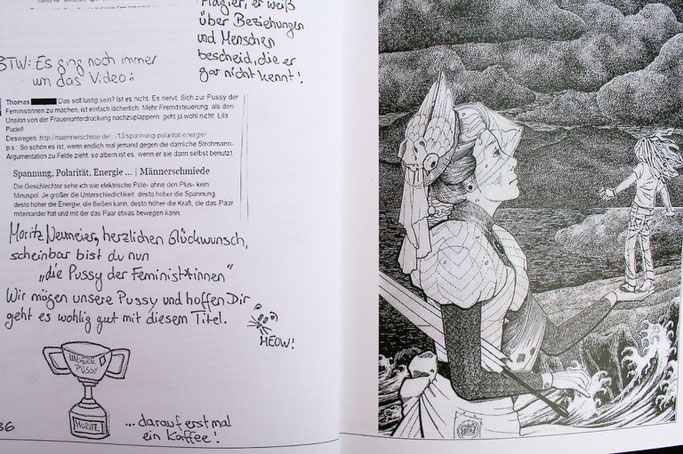 Plagier, er weiß
über Beziehungen
und Menschen
bescheid, die er
gar nicht kennt!
BTW: Es ging noch immer
um das Video:
Thomas Das soll lustig sein? Ist es nicht. Es nervt. Sich zur Pussy der
Feministinnen zu machen, ist einfach lächerlich. Mehr Fremdsteuerung, als den
Unsinn von der Frauenunterdrückung nachzuplappern, geht ja wohl nicht. Lila
Pudel!
Deswegen: http://maennerschmie.de/.../13/spannung-polaritat-energie/
p.s.: So schön es ist, wenn endlich mal jemand gegen die dämliche Strohmann-
Argumentation zu Felde zieht, so albern ist es, wenn er sie dann selbst benutzt.
Spannung, Polarität, Energie ... | Männerschmiede
Die Geschlechter sehe ich wie elektrische Pole- ohne den Plus- kein
Minuspol. Je größer die Unterschiedlichkeit, desto höher die Spannung,
desto höher die Energie, die fließen kann, desto höher die Kraft, die das Paar
miteinander hat und mit der das Paar etwas bewegen kann.
Moritz Neumeier, herzlichen Glückwunsch,
scheinbar bist du nun
„die Pussy der Feminist*innen"
Wir mögen unsere Pussy und hoffen Dir
geht es wohlig gut mit diesem Titel.
MEOW!
UNSERE
PUSSY
MORITZ
...darauf erst mal
ein Kaffee!
36